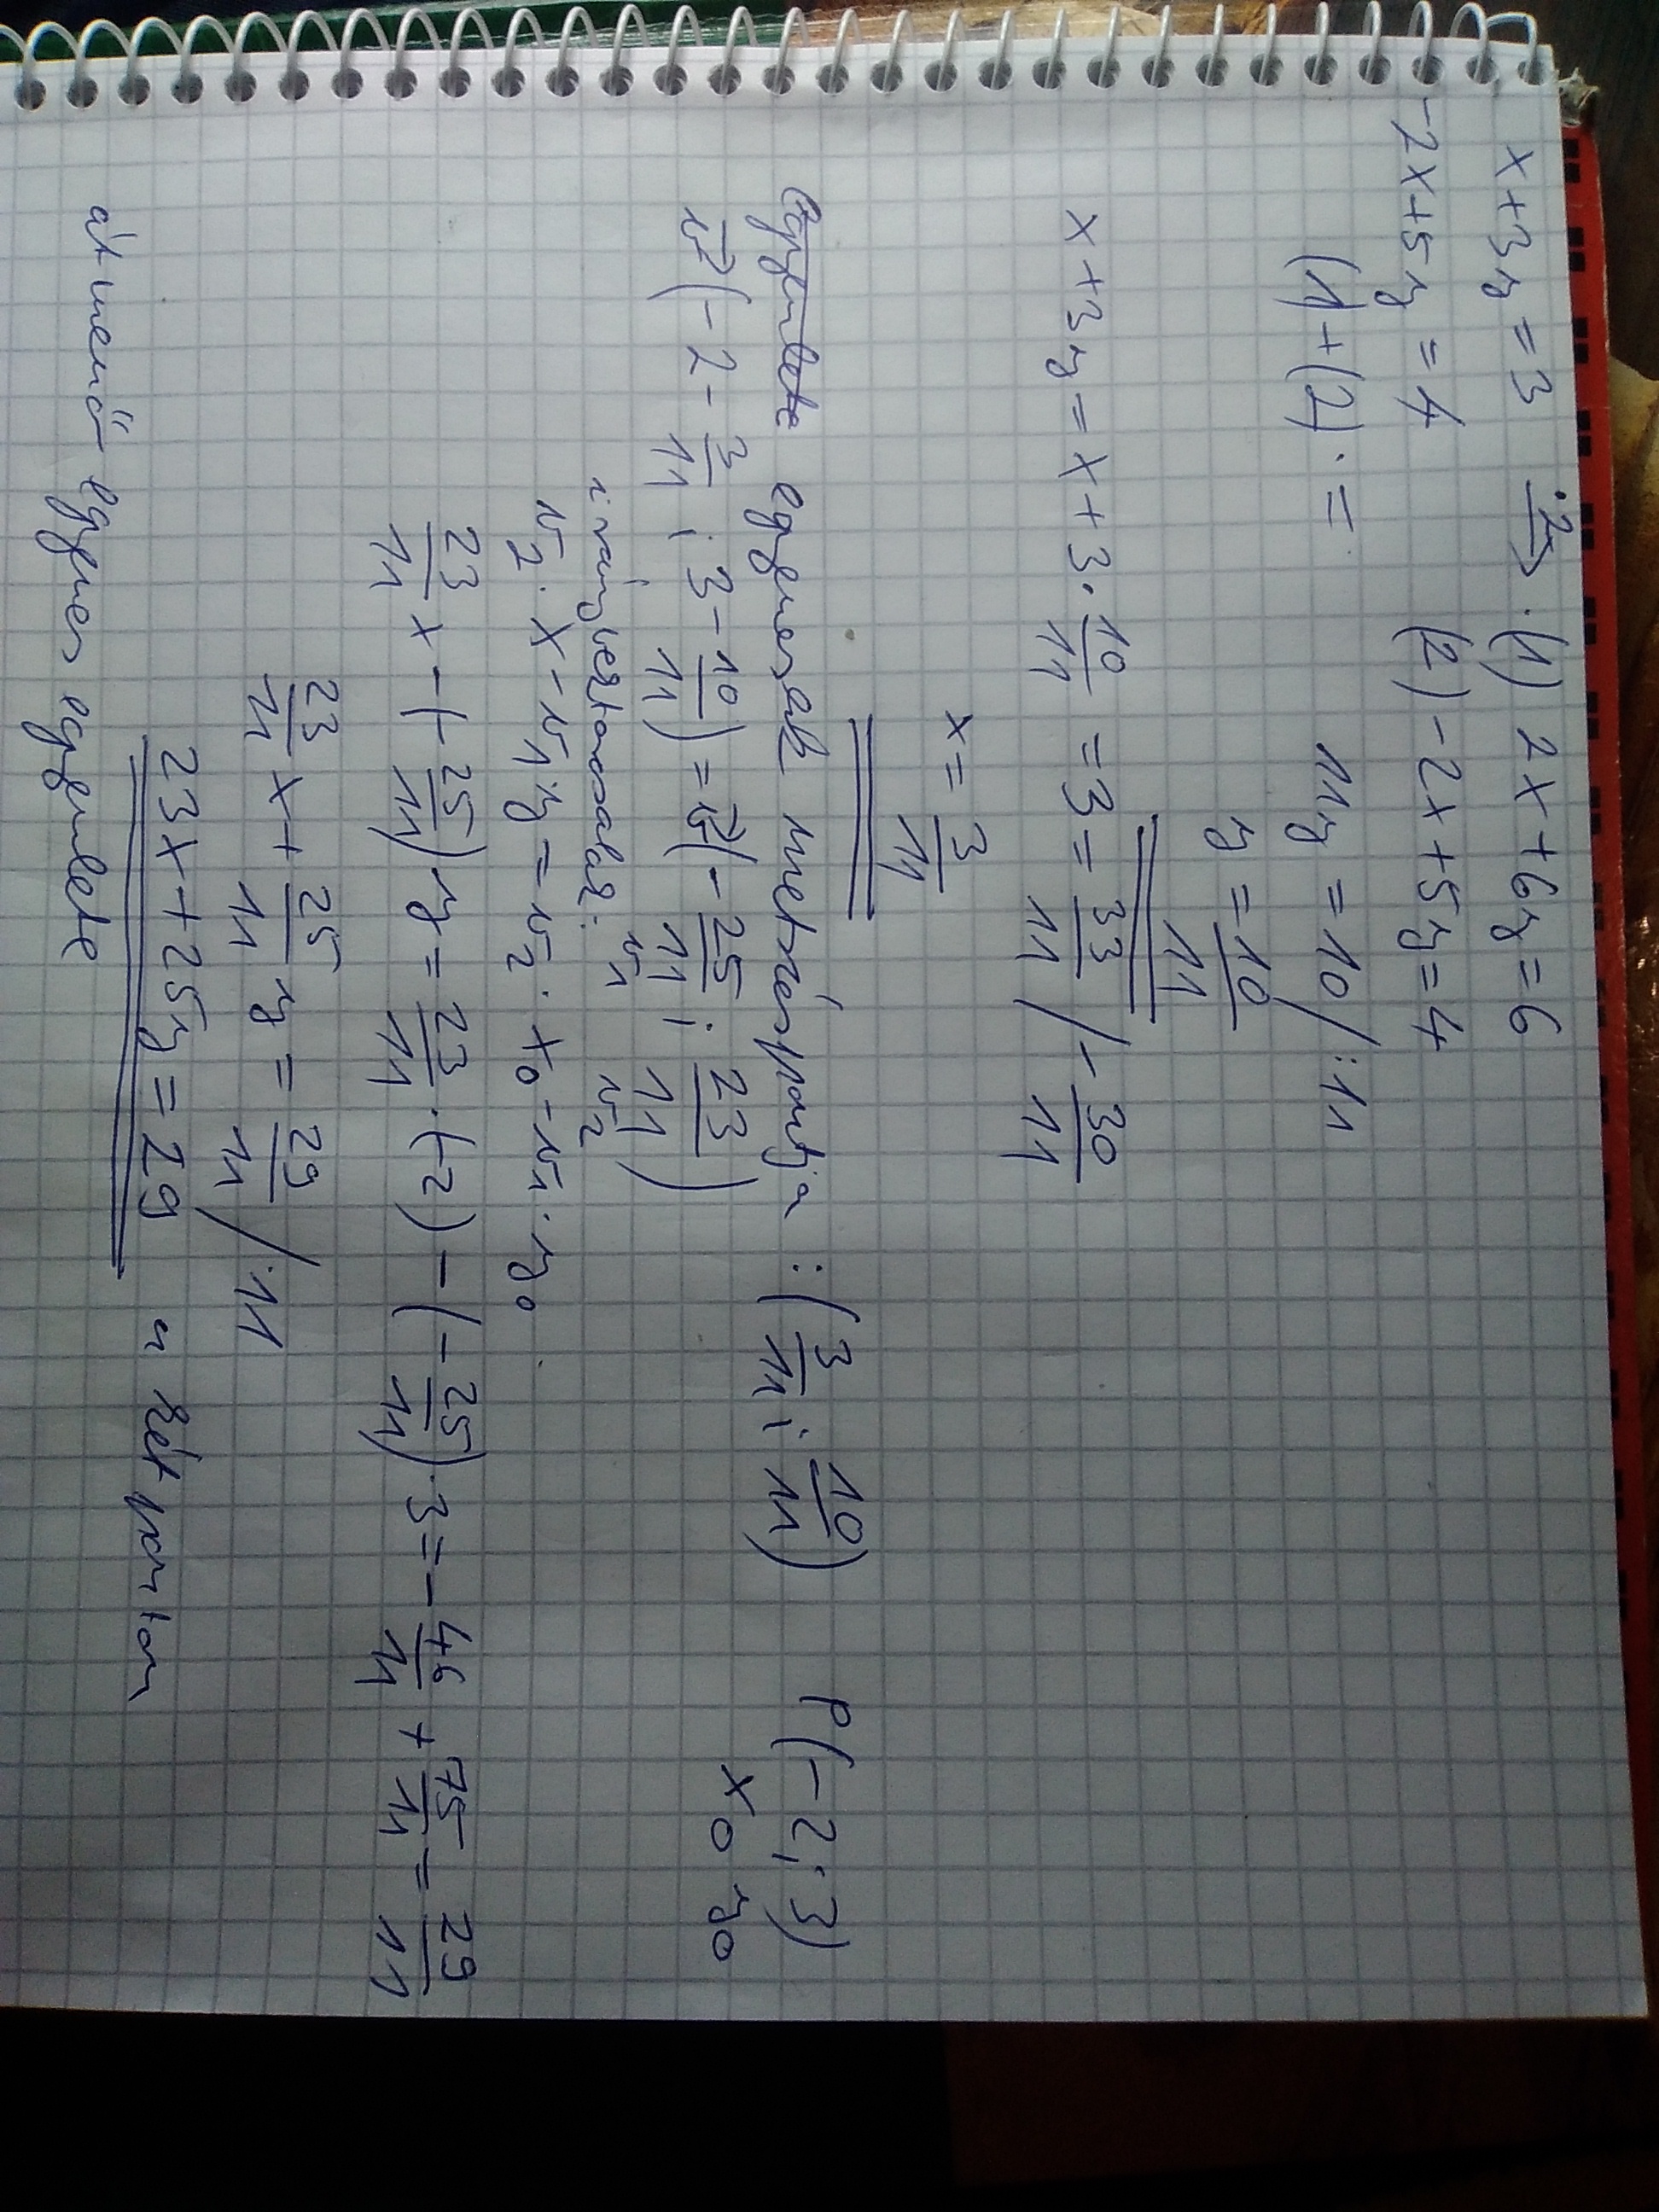 x+3y=3 ·2→ (1) 2x+6y=6
-2x+5y=4 (2) -2x+5y=4
(1)+(2):= 11y=10/:11
y=10/11
x+3y=x+3·10/11=3=33/11 /-30/11
x=3/11
egyenesek metszéspontja: (3/11; 10/11) P(-2; 3)
x0 y0
v(-2-3/11; 3-10/11)=v(-25/11; 23/11)
v1 v2
irányvektorosalak:
v2·x-v1·y=v2·x0-v1·y0
23/11x-(-25/11)y=23/11·(-2)-(-25/11)·3=-46/11+75/11=29/11
23/11x+25/11y=29/11/·11
23x+25y=29 a két ponton
átmenő egyenes egyenlete